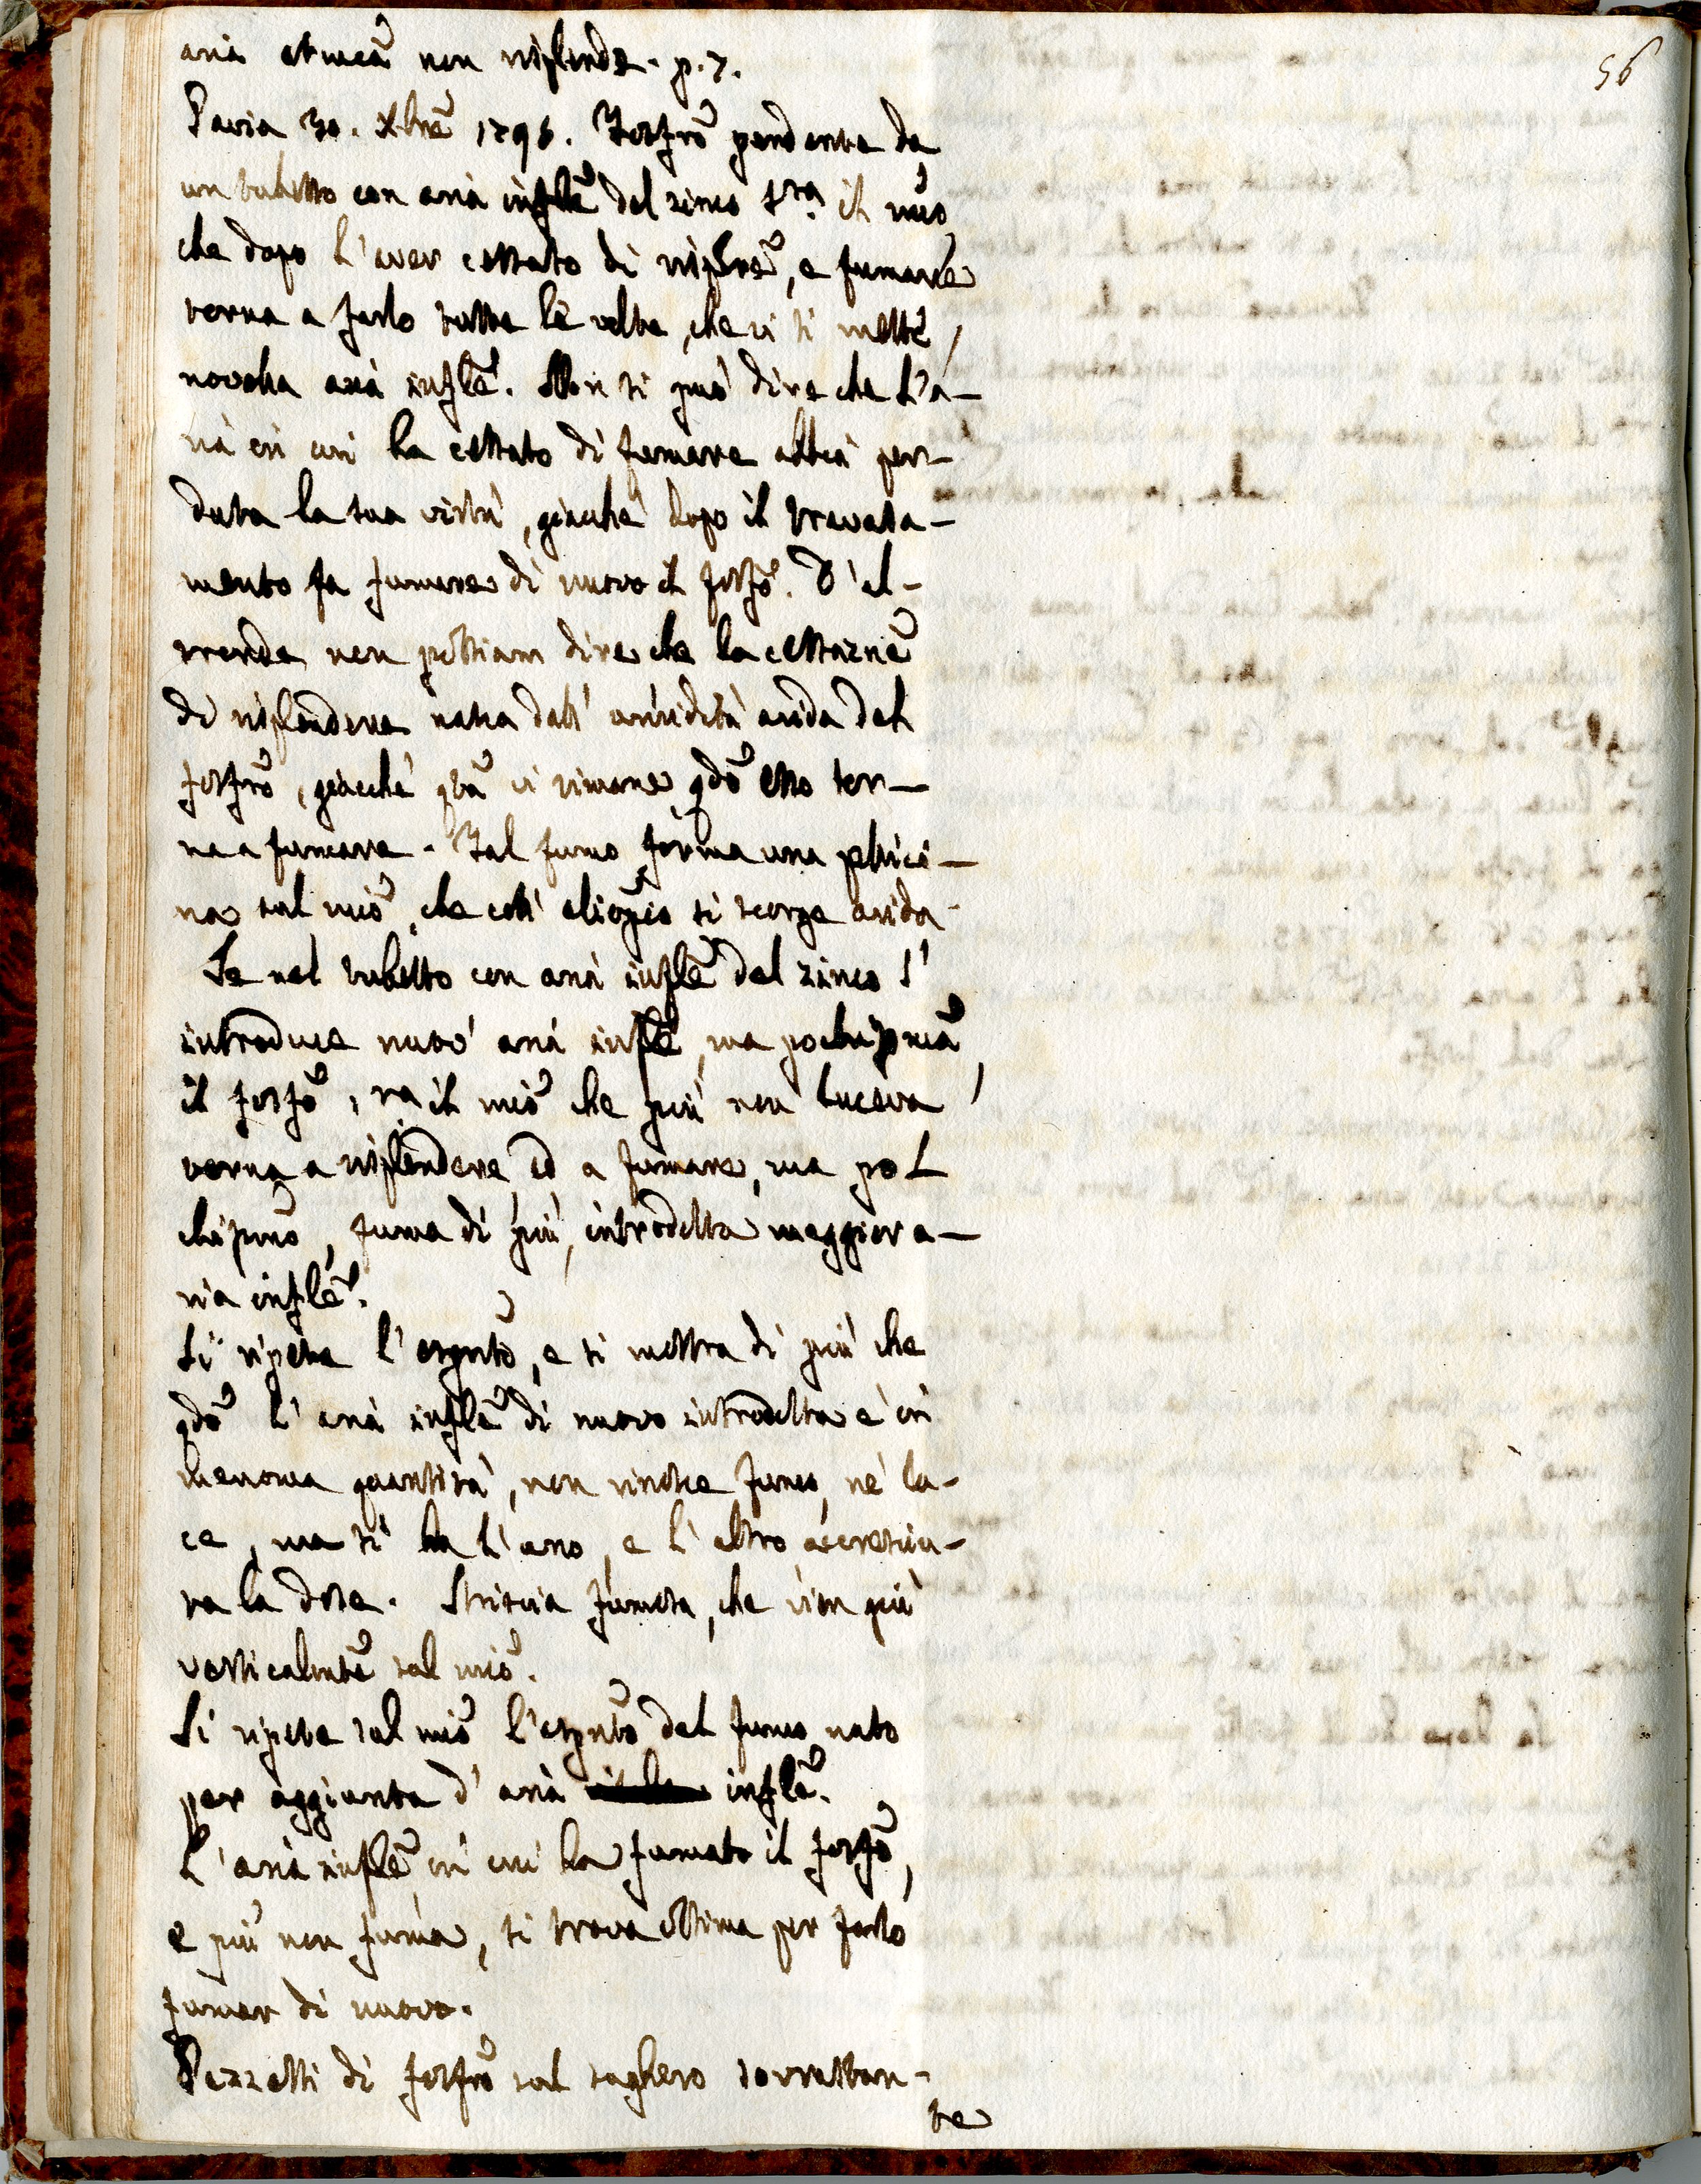 56
aria atmcã non risplende. p. 7.
Pavia 30. Xbrẽ 1796. Fosfrõ pendente da
un tubetto con aria inflẽ del zinco sra il mrio,
che dopo l'aver cessato di risplrẽ, e fumare
torna a farlo tutte le volte, che ci si mette
novella aria inflẽ. Non si può dire che l'a-
ria in cui ha cessato di fumare abbia per-
duta la sua virtù, giacchè dopo il travasa-
mento fa fumare di nuovo il fosfõ. D'al-
tronde non possiam dire che la cessaznẽ
di risplendere nasca dall'umidità acida del
fosfrõ, giacchè qtã ci rimane qdõ esso tor-
na a fumare. Tal fumo forma una pellici-
na sul mriõ, che coll' alcoolico si scorge acida.
Se nel tubetto con aria inflẽ del zinco s'
introduce nuov' aria inflẽ, ma pochissmã,
il fosfõ sra il mriõ che più non luceva
torna a risplendere ed a fumare, ma po-
chissmo, fuma di più, introdotta maggior a-
ria inflẽ.
Si ripete l'espntõ, e si mostra di più che
qdõ l'aria inflẽ di nuovo introdotta è in
menoma quantità, non nasce fumo, nè lu-
ce, ma si ha l'uno, e l'altro accresciu-
ta la dose. Striscia fumosa, che vien giù
verticalmtẽ sul mriõ.
Si ripete sul mriõ l'espntõ del fumo nato
per aggiunta d'aria inflẽ.
L'aria inflẽ in cui ha fumato il fosfõ,
e più non fuma, si trova ottima per farlo
fumar di nuovo.
Pezzetti di fosfrõ sul sughero sovrastan-
te